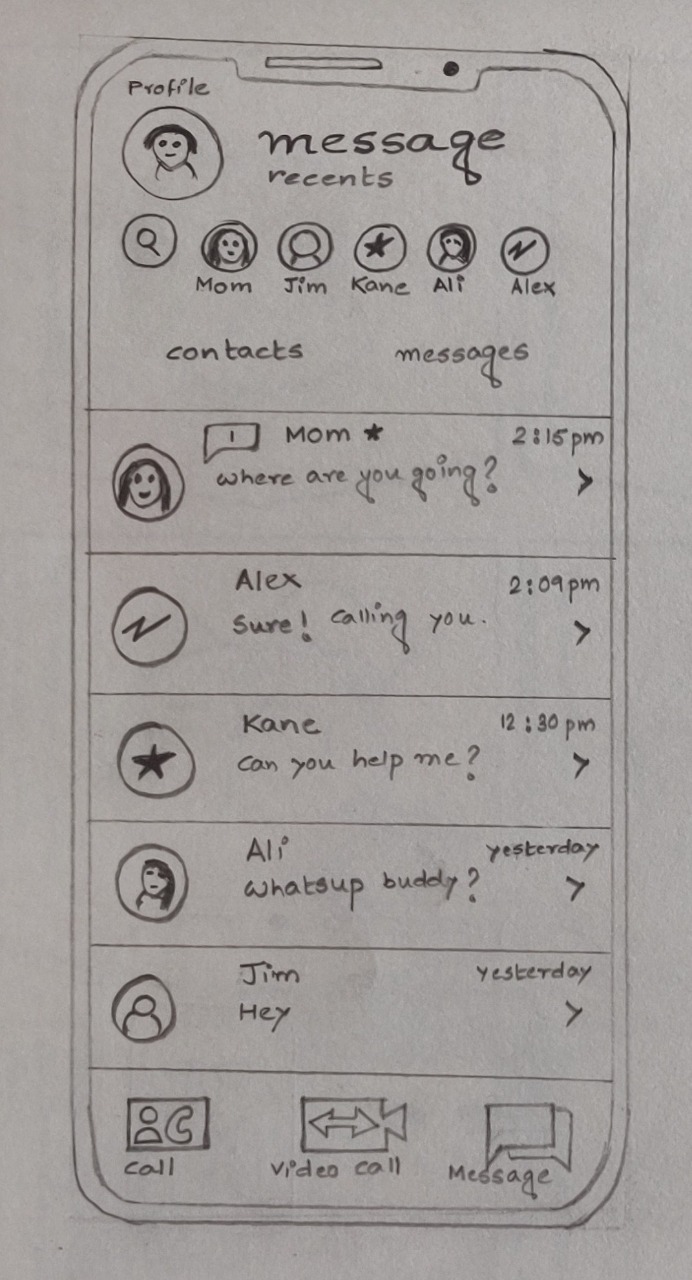 Profile
message
recents
Mom Jim Kane Ali Alex
contacts messages
1 Mom ★ 2:15pm
where are you going?
Alex 2:09pm
Sure! calling you.
Kane 12:30pm
can you help me?
Ali yesterday
whatsup buddy?
Jim yesterday
Hey
call video call Message